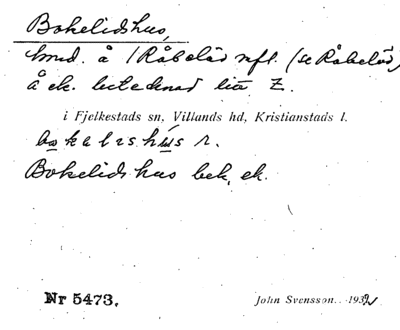 Bokelidshus,
hmd. å 1 Råbelöv nfl. (se Råbelöv)
å ek. betecknad litt Z.
i Fjelkestads sn, Villands hd, Kristianstads l.
bokalishus r.
Bokelidshus bek. ek.
Nr 5473. John Svensson. 1932